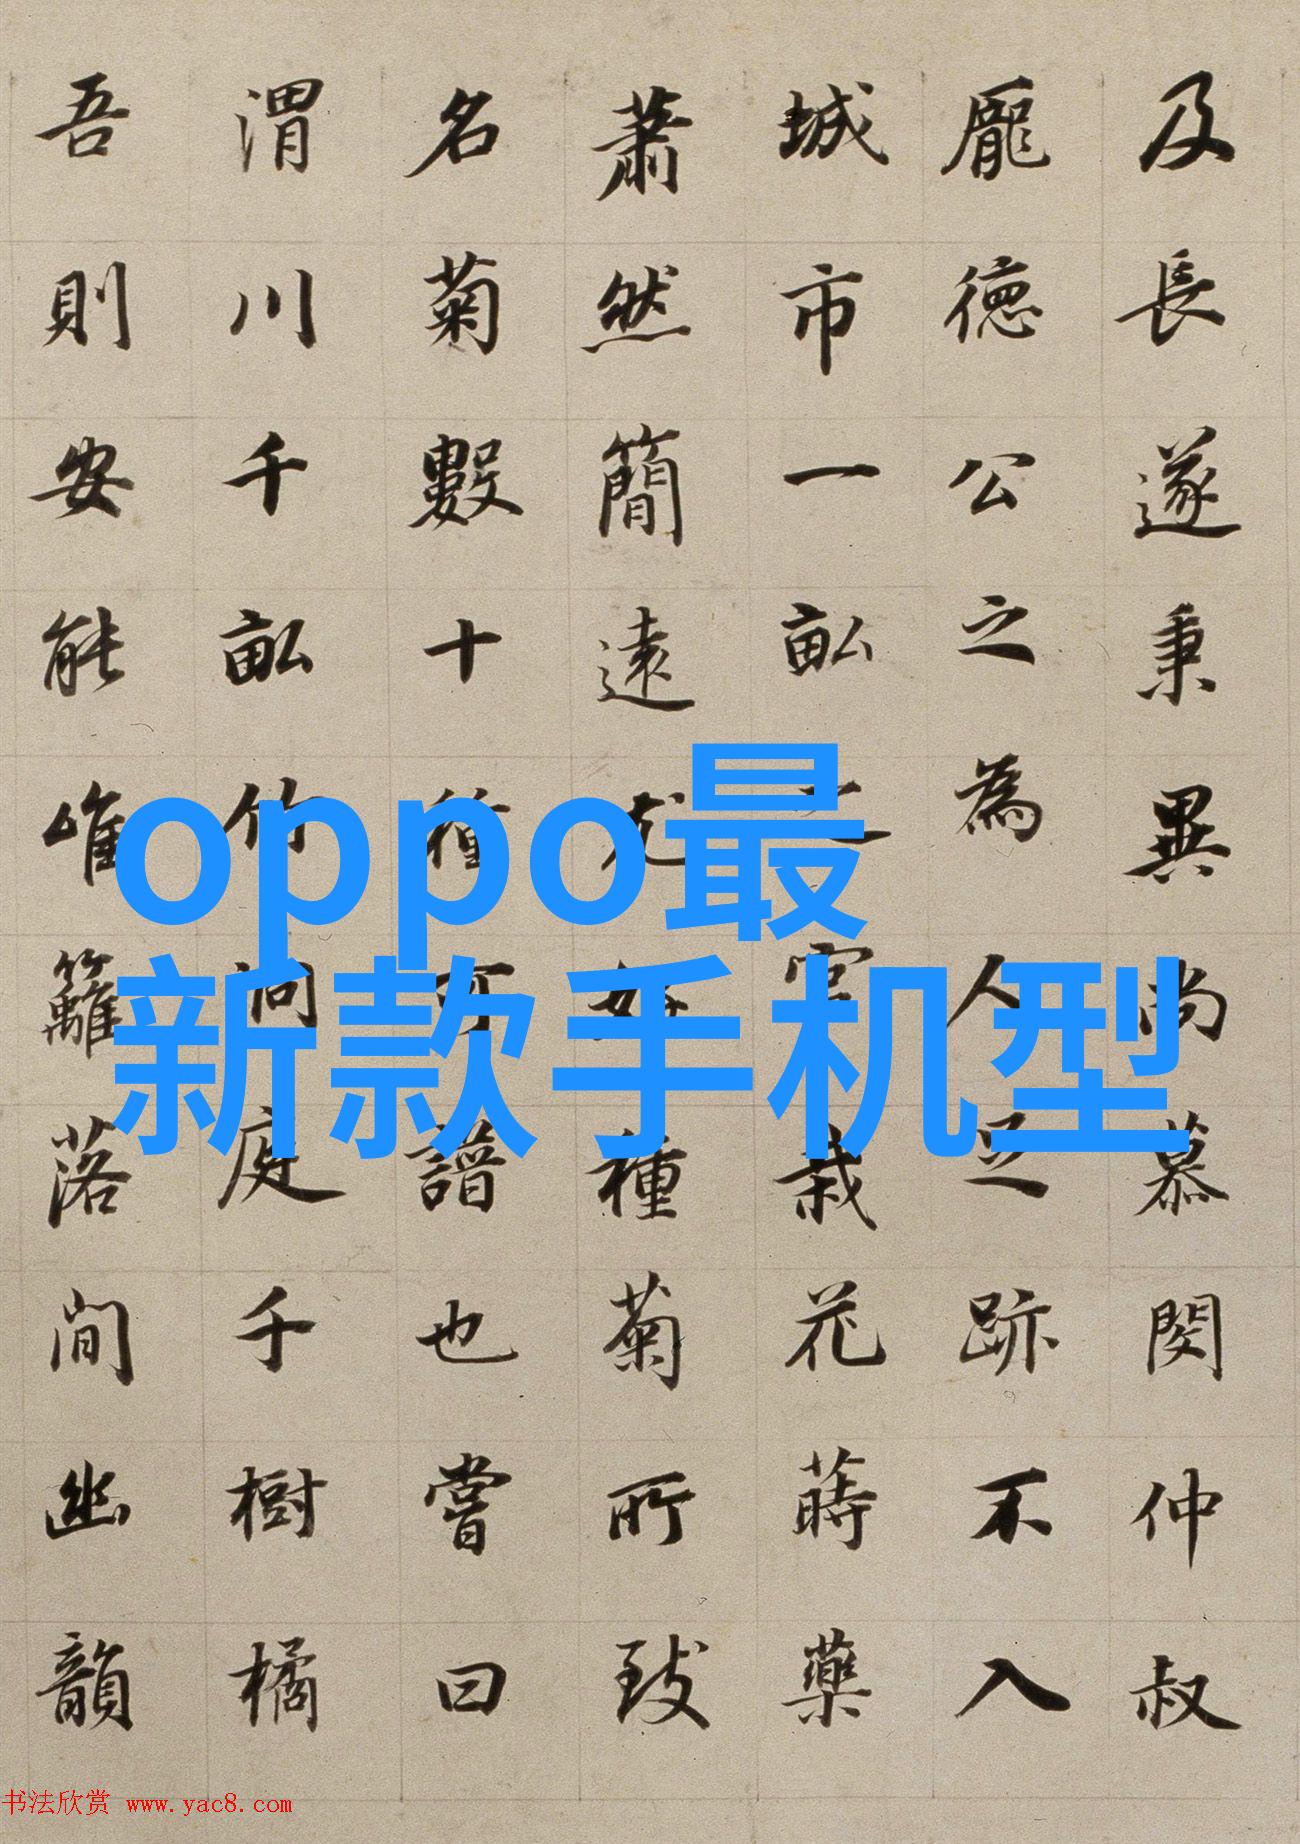 及長遂秉異尚慕閔仲叔
龐德公之為人足跡不入
城市一畝之宮栽花蒔藥
蕭然簡遠尤好種菊所致
名菊數十種可譜也嘗曰
渭川千畝竹洞庭千樹橘
吾則安能唯籬落間幽韻
oppo最
新款手机型
书法欣赏 www.yac8.com